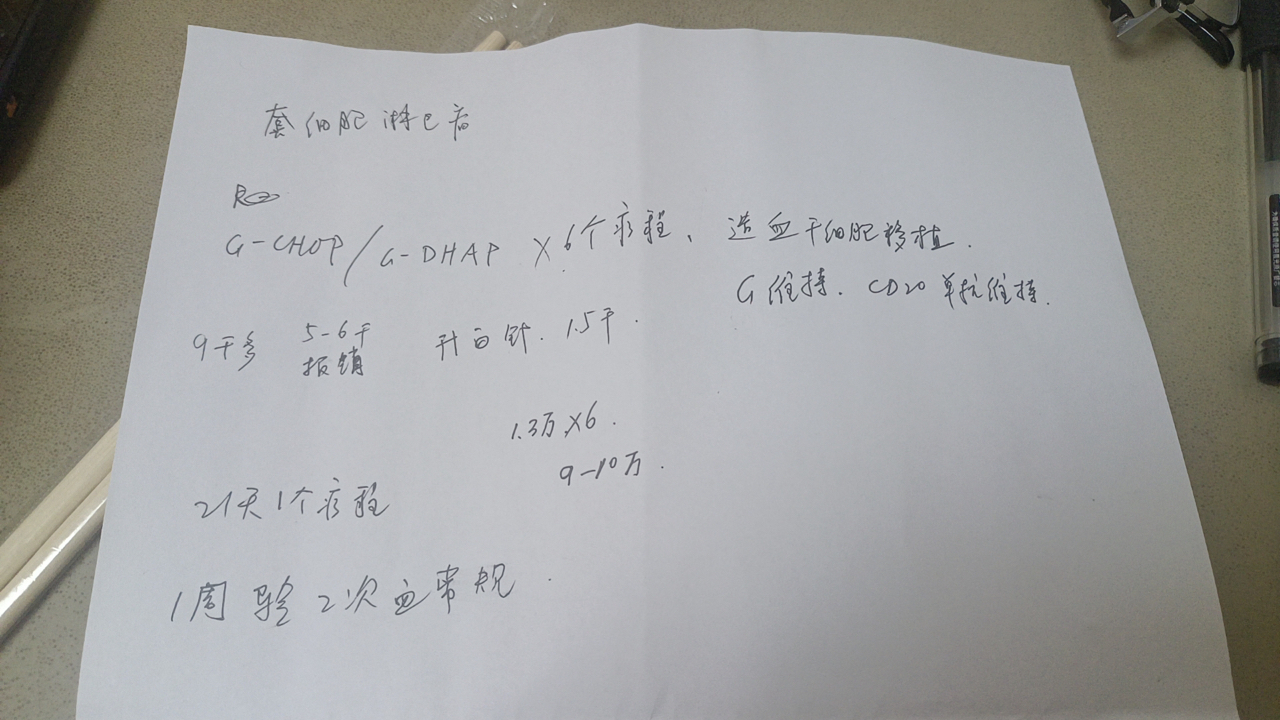 套细胞淋巴瘤
G-CHOP/G-DHAP ×6个疗程、造血干细胞移植.
G维持. CD20单抗维持.
9千多 5-6千 升白针. 1.5千.
报销
1.3万×6.
9-10万.
21天1个疗程
1周验2次血常规.